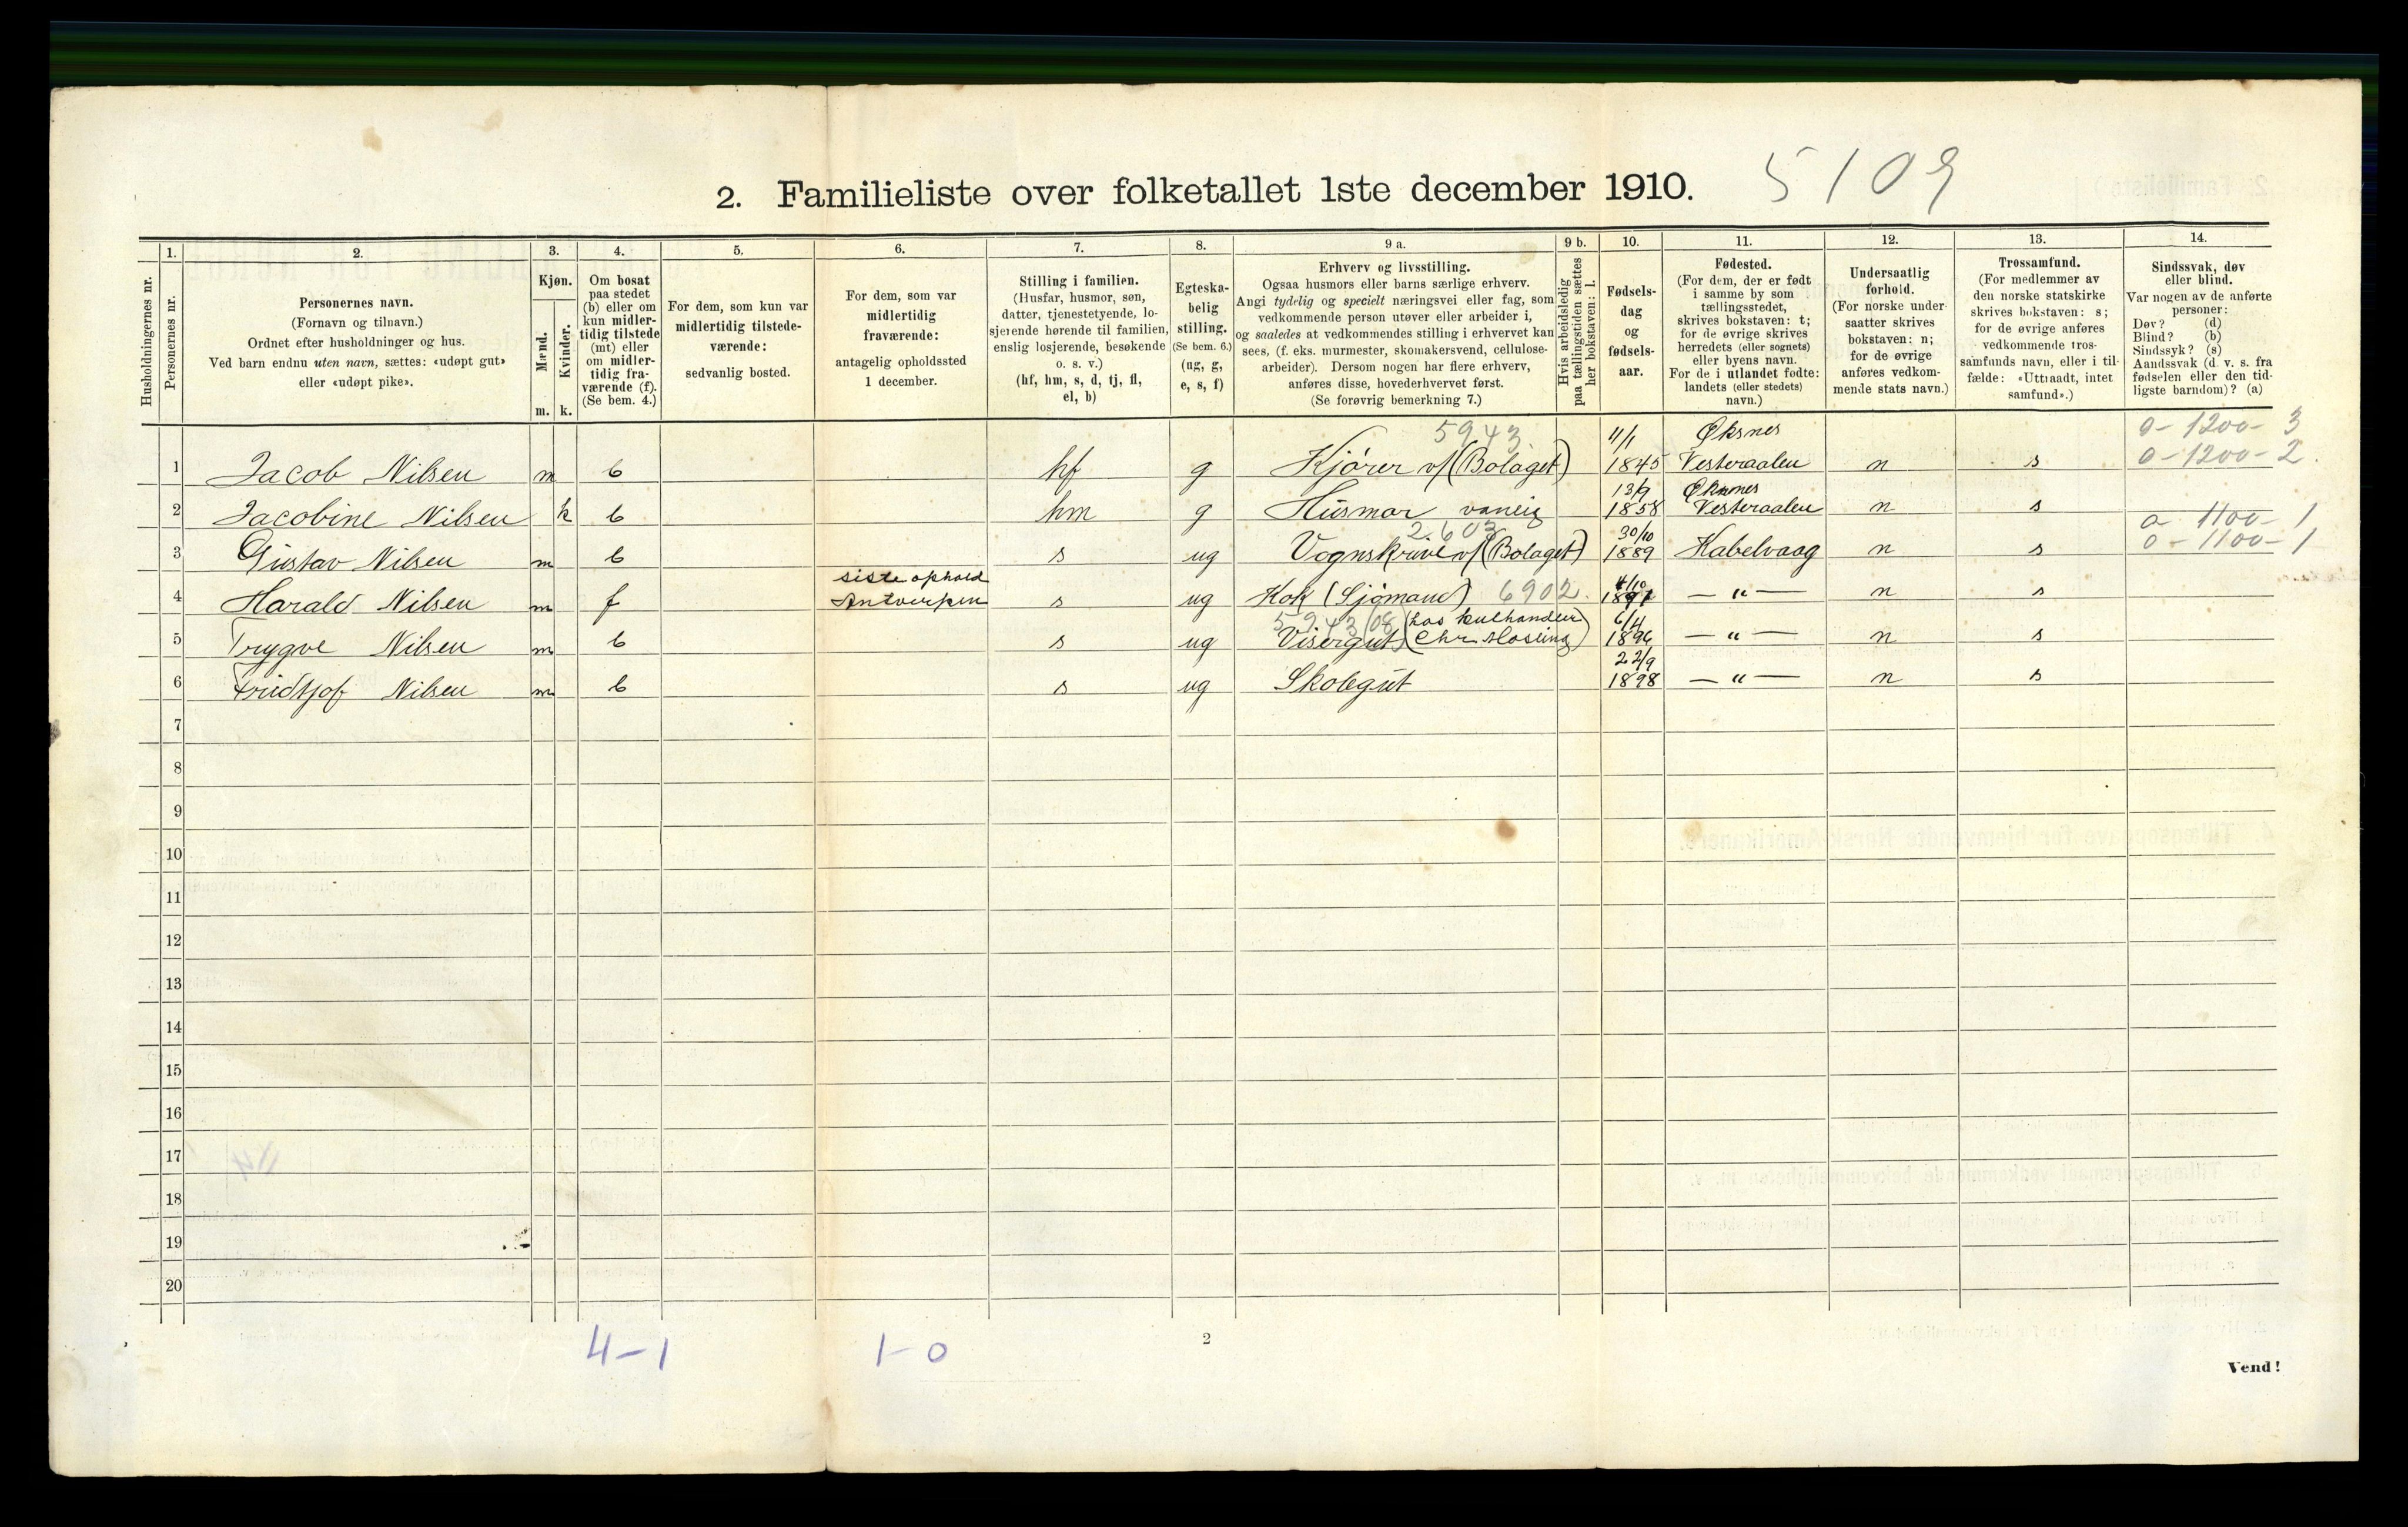 2. Familieliste over folketallet 1ste december 1910.
5109
Husholdningernes nr.
1.
Personernes nr.
2.
Personernes navn.
(Fornavn og tilnavn.)
Ordnet efter husholdninger og hus.
Ved barn endnu uten navn, sættes: «udøpt gut»
eller «udøpt pike».
3.
Kjøn.
Mænd.
Kvinder.
m. k.
4.
Om bosat
paa stedet
(b) eller om
kun midler-
tidig tilstede
(mt) eller
om midler-
tidig fra-
værende (f).
(Se bem. 4.)
5.
For dem, som kun var
midlertidig tilstede-
værende:
sedvanlig bosted.
6.
For dem, som var
midlertidig
fraværende:
antagelig opholdssted
1 december.
7.
Stilling i familien.
(Husfar, husmor, søn,
datter, tjenestetyende, lo-
sjerende hørende til familien,
enslig losjerende, besøkende
o. s. v.)
(hf, hm, s, d, tj, fl,
el, b)
8.
Egteska-
belig
stilling.
(Se bem. 6.)
(ug, g,
e, s, f)
9 a.
Erhverv og livsstilling.
Ogsaa husmors eller barns særlige erhverv.
Angi tydelig og specielt næringsvei eller fag, som
vedkommende person utøver eller arbeider i,
og saaledes at vedkommendes stilling i erhvervet kan
sees, (f. eks. murmester, skomakersvend, cellulose-
arbeider). Dersom nogen har flere erhverv,
anføres disse, hovederhvervet først.
(Se forøvrig bemerkning 7.)
9 b.
Hvis arbeidsledig
paa tællingstiden sættes
her bokstaven: l.
10.
Fødsels-
dag
og
fødsels-
aar.
11.
Fødested.
(For dem, der er født
i samme by som
tællingsstedet,
skrives bokstaven: t;
for de øvrige skrives
herredets (eller sognets)
eller byens navn.
For de i utlandet fødte:
landets (eller stedets)
navn.)
12.
Undersaatlig
forhold.
(For norske under-
saatter skrives
bokstaven: n;
for de øvrige
anføres vedkom-
mende stats navn.)
13.
Trossamfund.
(For medlemmer av
den norske statskirke
skrives bokstaven: s;
for de øvrige anføres
vedkommende tros-
samfunds navn, eller i til-
fælde: «Uttraadt, intet
samfund».)
14.
Sindssvak, døv
eller blind.
Var nogen av de anførte
personer:
Døv? (d)
Blind? (b)
Sindssyk? (s)
Aandssvak (d. v. s. fra
fødselen eller den tid-
ligste barndom)? (a)
5943. 4/1 Øksnes 0-1200-3
1 Jacob Nilsen m b hf g Kjører v/(Bolaget) 1845 Vesteraalen n s 0-1200-2.
13/9 Øksnes
2 Jacobine Nilsen k b hm g Husmor 1858 Vesteraalen n s
2.603 30/10 0-1100-1
3 Gustav Nilsen m b s ug Vognskriver v/(Bolaget) 1889 Kabelvaag n s 0-1100-1
siste ophold 4/10
4 Harald Nilsen m f Antverpen s ug Kok (Sjømand) 6902. 1891 — " — n s
5943/08 (hos kulhandler 6/4
5 Trygve Nilsen m b s ug Visergut 1896 — " — n s
22/9
6 Fridtjof Nilsen m b s ug Skolegut 1898 — " — n s
7
8
9
10
11
12
13
14
15
16
17
18
19
20
4-1 1-0
2
Vend!